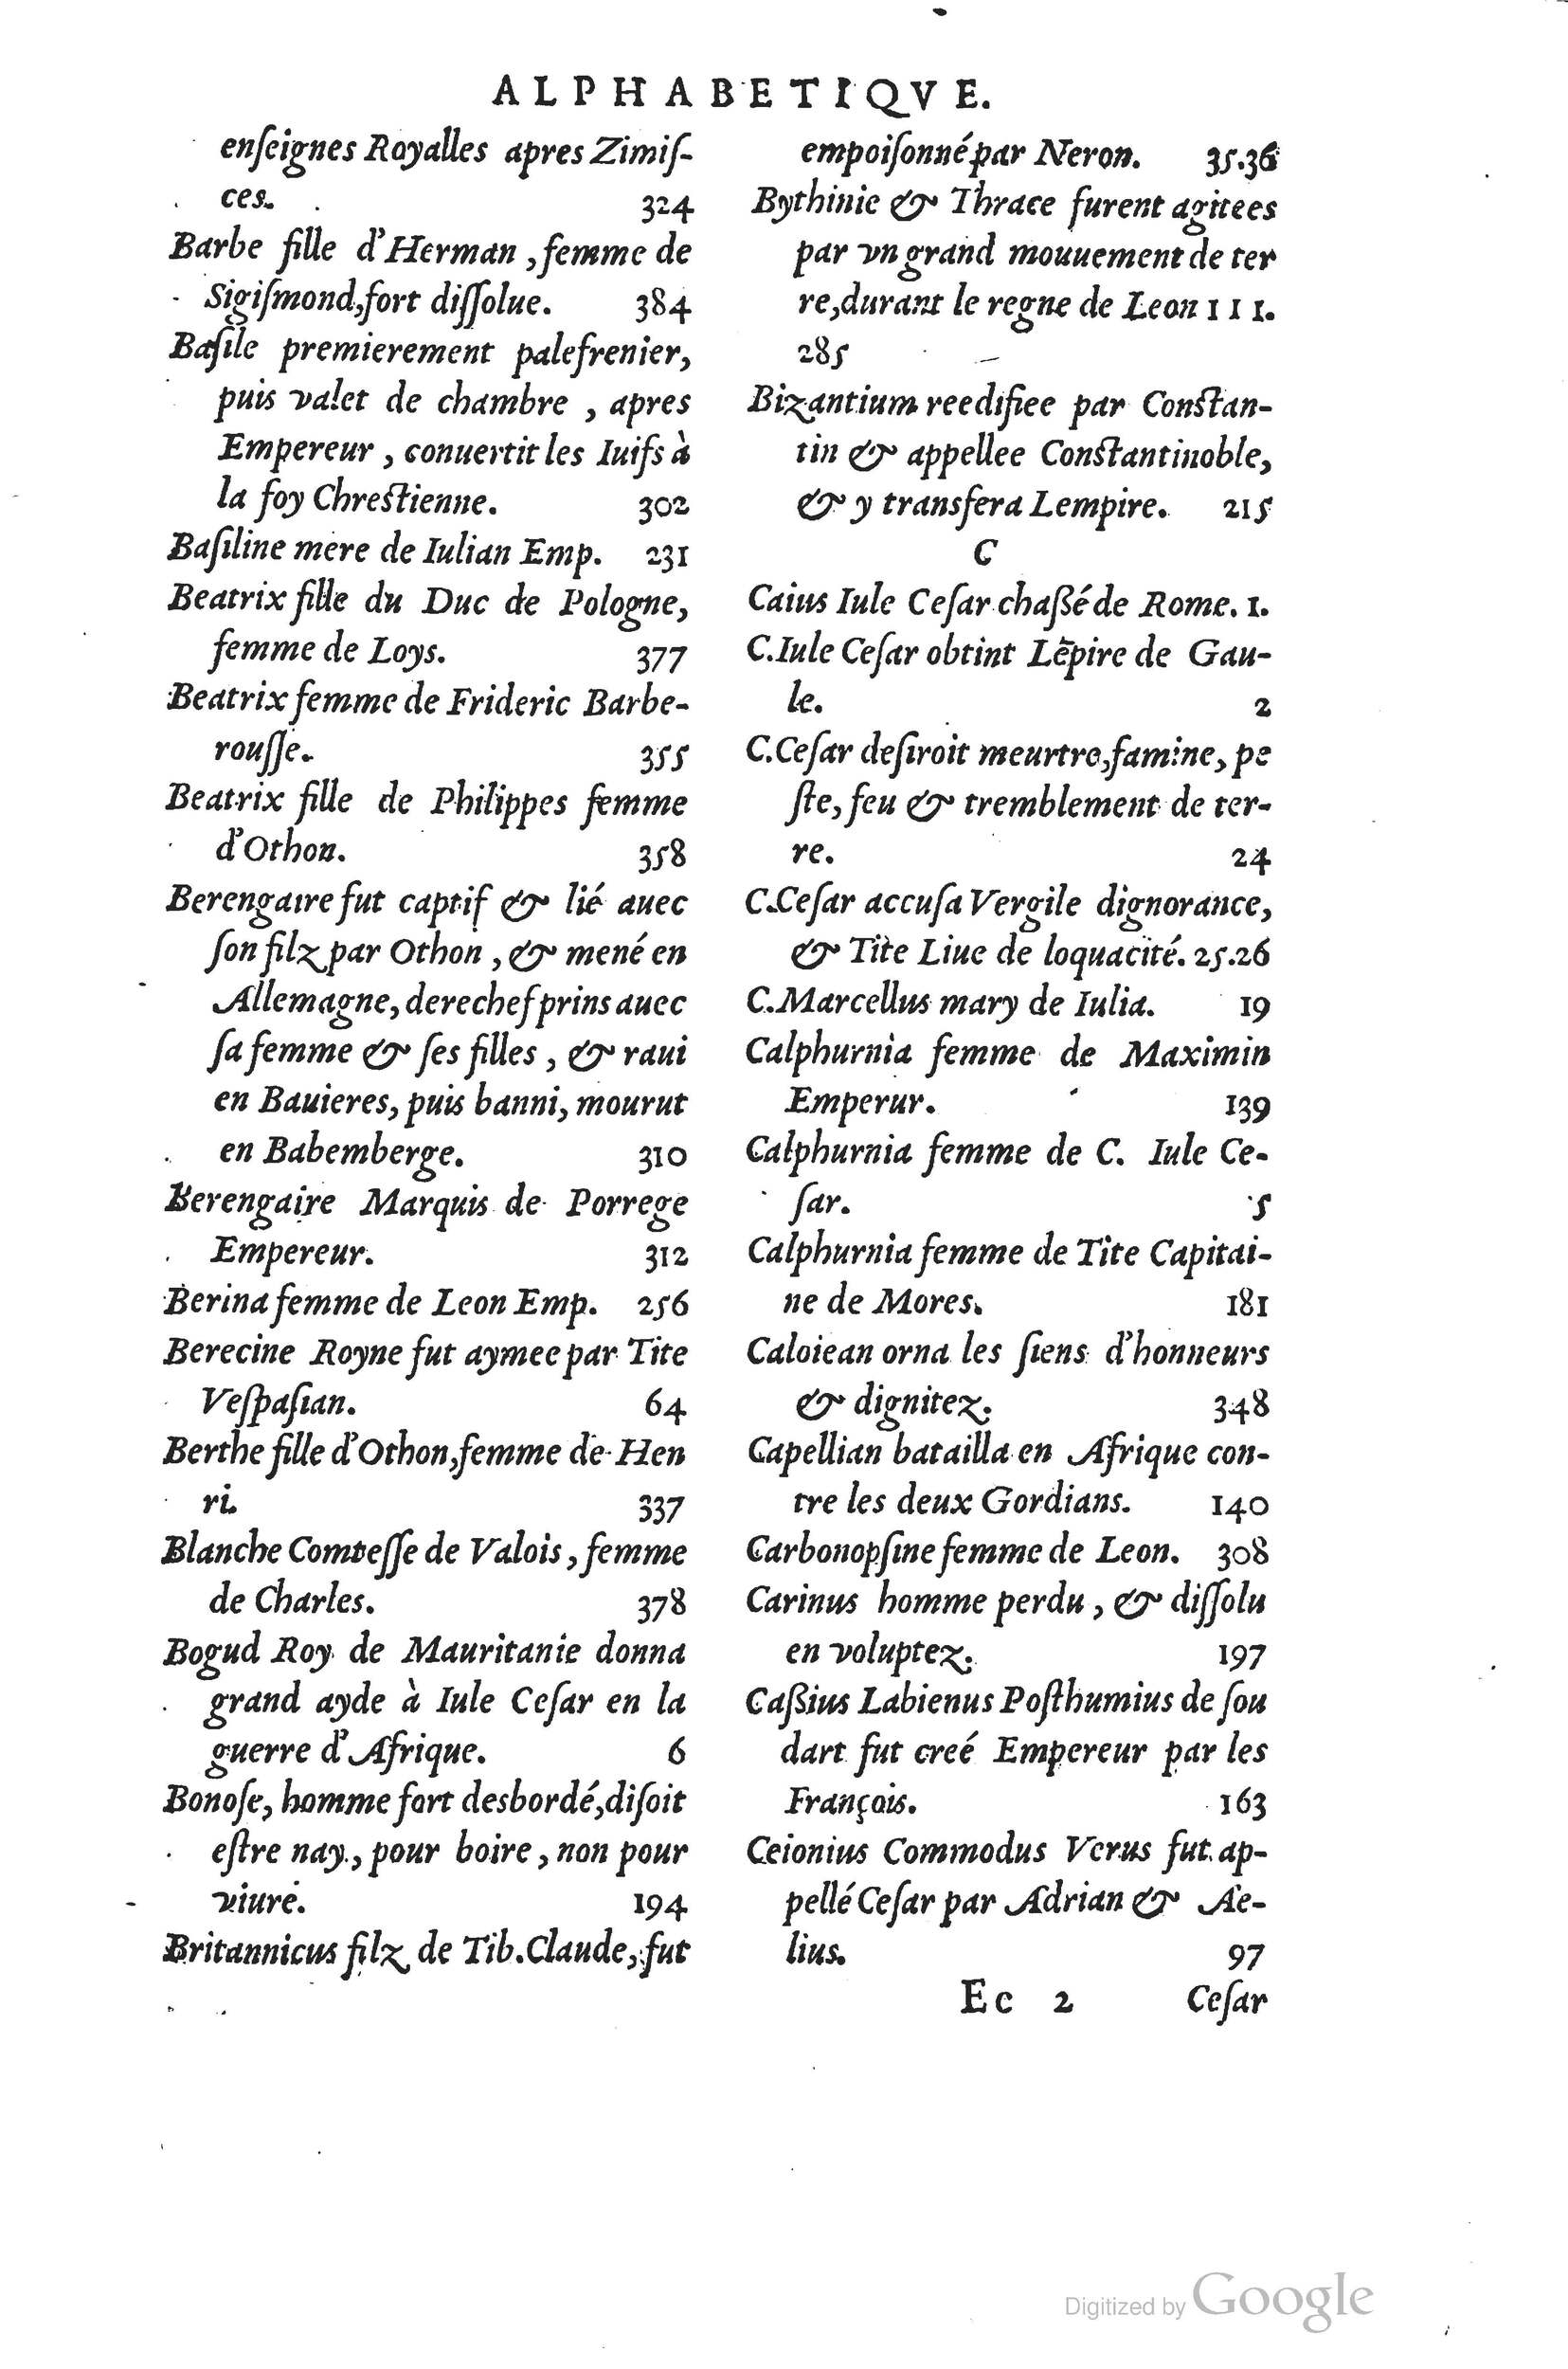 ALPHABETIQVE.
enſeignes Royalles apres Zimiſ-
ces. 324
Barbe fille d'Herman, femme de
Sigiſmond, fort diſſolue. 384
Baſile premierement palefrenier,
puis valet de chambre, apres
Empereur, conuertit les Iuifs à
la foy Chreſtienne. 302
Baſiline mere de Iulian Emp. 231
Beatrix fille du Duc de Pologne,
femme de Loys. 377
Beatrix femme de Frideric Barbe-
rouſſe. 355
Beatrix fille de Philippes femme
d'Othon. 358
Berengaire fut captif & lié auec
ſon filz par Othon, & mené en
Allemagne, derechef prins auec
ſa femme & ſes filles, & raui
en Bauieres, puis banni, mourut
en Babemberge. 310
Berengaire Marquis de Porrege
Empereur. 312
Berina femme de Leon Emp. 256
Berecine Royne fut aymee par Tite
Veſpaſian. 64
Berthe fille d'Othon, femme de Hen
ri. 337
Blanche Comteſſe de Valois, femme
de Charles. 378
Bogud Roy de Mauritanie donna
grand ayde à Iule Ceſar en la
guerre d'Afrique. 6
Bonoſe, homme fort desbordé, diſoit
eſtre nay, pour boire, non pour
viure. 194
Britannicus filz de Tib. Claude, fut
empoiſonné par Neron. 35.36
Bythinie & Thrace furent agitees
par vn grand mouuement de ter
re, durant le regne de Leon III.
285
Bizantium reedifiee par Conſtan-
tin & appellee Conſtantinoble,
& y transfera Lempire. 215
C
Caius Iule Ceſar chaßé de Rome. 1.
C. Iule Ceſar obtint Lēpire de Gau-
le. 2
C. Ceſar deſiroit meurtre, famine, pe
ſte, feu & tremblement de ter-
re. 24
C. Ceſar accuſa Vergile dignorance,
& Tite Liue de loquacité. 25.26
C. Marcellus mary de Iulia. 19
Calphurnia femme de Maximin
Emperur. 139
Calphurnia femme de C. Iule Ce-
ſar. 5
Calphurnia femme de Tite Capitai-
ne de Mores. 181
Caloiean orna les ſiens d'honneurs
& dignitez. 348
Capellian batailla en Afrique con-
tre les deux Gordians. 140
Carbonopſine femme de Leon. 308
Carinus homme perdu, & diſſolu
en voluptez. 197
Caßius Labienus Poſthumius de ſou
dart fut creé Empereur par les
François. 163
Ceionius Commodus Verus fut ap-
pellé Ceſar par Adrian & Ae-
lius. 97
Ee 2 Ceſar
Digitized by Google